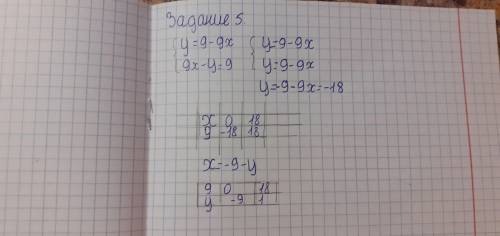 Задание 5.
{y=9-9x {y=9-9x
{9x-y=9 {y=9-9x
y=-9-9x=-18
x 0 18
y -18 18
x=-9-y
9 0 18
y -9 1